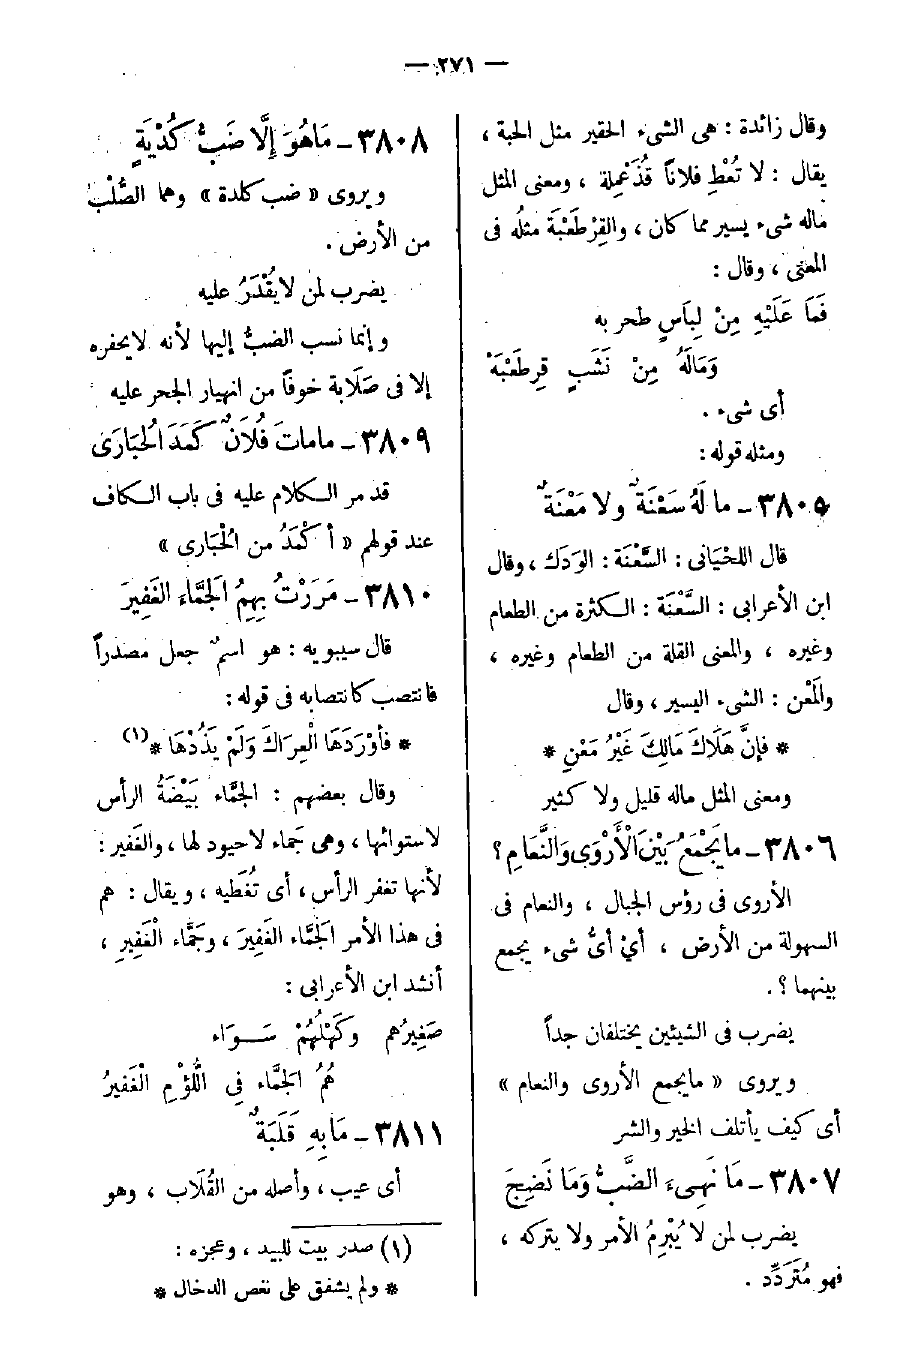 — ٢٧١ —
وقال زائدة : هى الشىء الحقير مثل الحبة ،
يقال : لا تُعْطِ فلاناً قُذَعْمِلة ، ومعنى المثل
ماله شىء يسير مما كان ، والقِرْطَعْبَة مثلُه فى
المعنى ، وقال :
فَمَا عَلَيْهِ مِنْ لِبَاسٍ طحربه
وَمَالَهُ مِنْ نَشَبٍ قِرِطَعْبَهْ
أى شىء .
ومثله قوله :
٣٨٠٥ – ما لَهُ سَعْنَةٌ ولا مَعْنَةٌ
قال اللحْيَانى : السَّعْنَة : الوَدَك ، وقال
ابن الأعرابى : السَّعْنَة : الكثرة من الطعام
وغيره ، والمعنى القلة من الطعام وغيره ،
والمَعْن : الشىء اليسير ، وقال
* فإِنَّ هَلَاكَ مَالِكَ غَيْرُ مَعْنِ *
ومعنى المثل ماله قليل ولا كثير
٣٨٠٦ – ما يَجْمَعُ بَيْنَ الْأَرْوَى وَالنَّعَامِ ؟
الأروى فى رؤس الجبال ، والنعام فى
السهولة من الأرض ، أىْ أىُّ شىء يجمع
بينهما ؟ .
يضرب فى الشيئين يختلفان جداً
ويروى « ما يجمع الأروى والنعام »
أى كيف يأتلف الخير والشر
٣٨٠٧ – مَا نَهِىءَ الضَّبُّ وَمَا نَضِجَ
يضرب لمن لا يُبْرِمُ الأمر ولا يتركه ،
فهو مُتَرَدِّد .
٣٨٠٨ – مَاهُوَ إِلَّا ضَبُّ كُدْيَةٍ
ويروى « ضب كلدة » وهما الصُّلْبُ
من الأرض .
يضرب لمن لا يُقْدَرُ عليه
وإنما نسب الضبُّ إليها لأنه لا يحفره
إلا فى صَلَابة خوفاً من انهيار الجحر عليه
٣٨٠٩ – مامات فُلَانٌ كَمَدَ الْحُبَارَى
قد مر الكلام عليه فى باب الكاف
عند قولهم « أ كْمَدُ من الحُبَارى »
٣٨١٠ – مَرَرْتُ بِهِمُ الْجَمَّاءَ الْغَفِيرَ
قال سيبويه : هو اسمٌ جعل مصدراً
فانتصب كانتصابه فى قوله :
* فأوْرَدَهَا الْعِرَاكَ وَلَمْ يَذُدْهَا *(١)
وقال بعضهم : الجَمَّاء بَيْضَةُ الرأس
لاستوائها ، وهى جَماء لاحيود لها ، والغَفير :
لأنها تغفر الرأس ، أى تُغَطيه ، ويقال : هم
فى هذا الأمر الجَمَّاءَ الغَفِيرَ ، وجَمَّاء الْغَفِيرِ ،
أنشد ابن الأعرابى :
صَغِيرُهم وكَهْلُهُمْ سَوَاء
هُمُ الجَمَّاء فِى اللُّؤْمِ الْغَفيرُ
٣٨١١ – مَا بِهِ قَلَبَةٌ
أى عيب ، وأصله من القُلَاب ، وهو
(١) صدر بيت للبيد ، وعجزه :
* ولم يشفق على نغص الدخال *